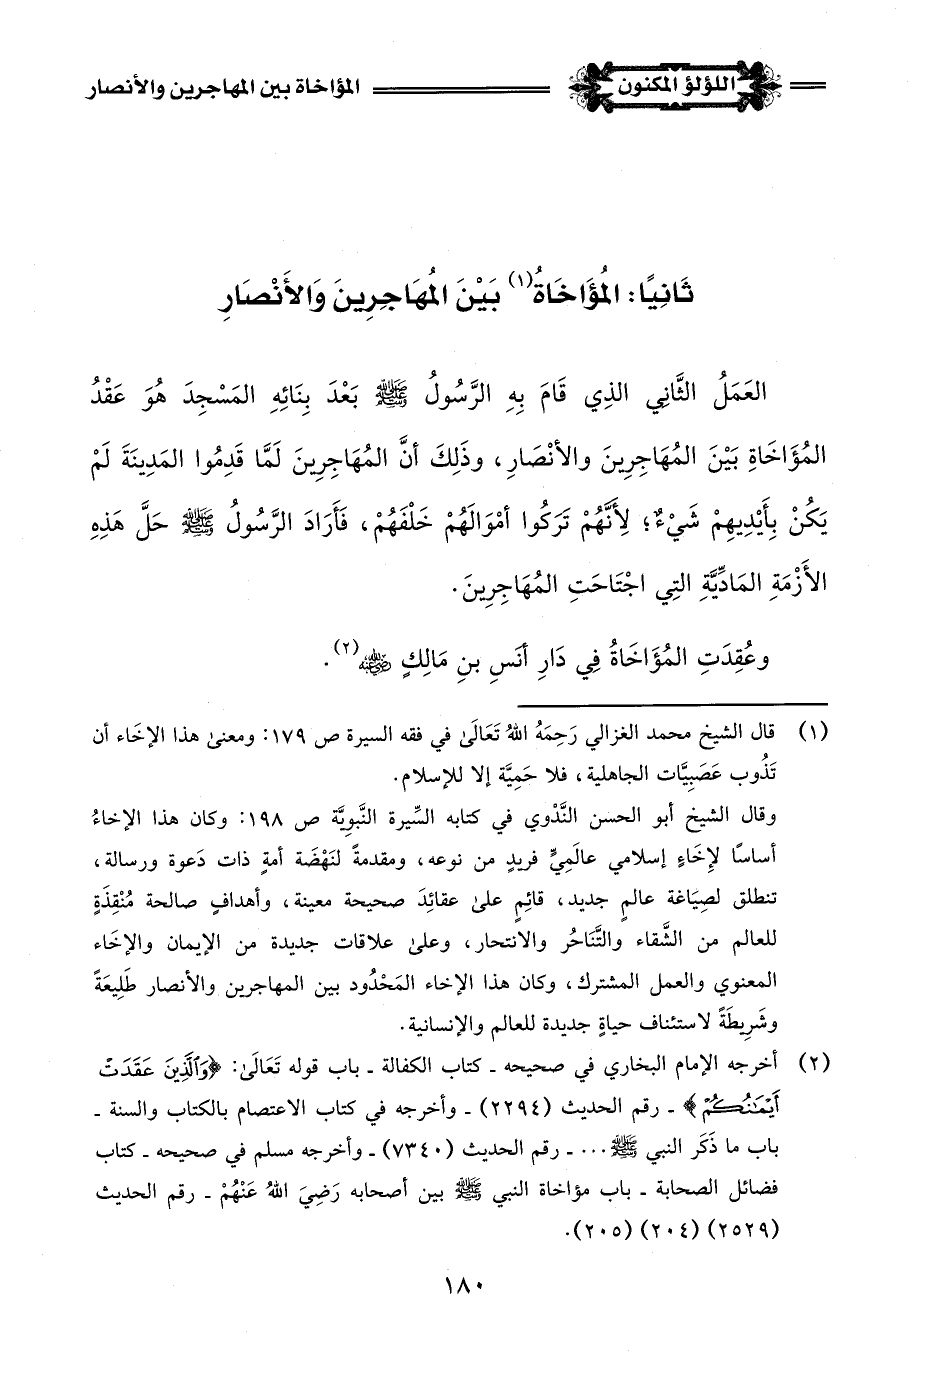 اللؤلؤ المكنون المؤاخاة بين المهاجرين والأنصار
ثَانِيًا: المُؤَاخَاةُ(١) بَيْنَ المُهَاجِرِينَ وَالأَنْصَارِ
العَمَلُ الثَّانِي الذِي قَامَ بِهِ الرَّسُولُ ﷺ بَعْدَ بِنَائِهِ المَسْجِدَ هُوَ عَقْدُ
المُؤَاخَاةِ بَيْنَ المُهَاجِرِينَ والأنْصَارِ، وذَلِكَ أنَّ المُهَاجِرِينَ لَمَّا قَدِمُوا المَدِينَةَ لَمْ
يَكُنْ بِأَيْدِيهِمْ شَيْءٌ؛ لِأَنَّهُمْ تَرَكُوا أمْوَالَهُمْ خَلْفَهُمْ، فَأَرَادَ الرَّسُولُ ﷺ حَلَّ هَذِهِ
الأَزْمَةِ المَادِّيَّةِ التِي اجْتَاحَتِ المُهَاجِرِينَ.
وعُقِدَتِ المُؤَاخَاةُ فِي دَارِ أنَسِ بنِ مَالِكٍ رضي الله عنه(٢).
(١) قال الشيخ محمد الغزالي رَحِمَهُ اللهُ تَعَالَى في فقه السيرة ص ١٧٩: ومعنى هذا الإخَاء أن
تَذُوب عَصَبِيَّات الجاهلية، فلا حَمِيَّة إلا للإسلام.
وقال الشيخ أبو الحسن النَّدْوي في كتابه السِّيرة النَّبوِيَّة ص ١٩٨: وكان هذا الإخاءُ
أساسًا لإخَاءٍ إسلامي عالَمِيٍّ فريدٍ من نوعه، ومقدمةً لنَهْضَة أمةٍ ذات دَعوة ورسالة،
تنطلق لصِيَاغة عالمٍ جديد، قائِمٍ على عقائدَ صحيحة معينة، وأهدافٍ صالحة مُنْقِذَةٍ
للعالم من الشَّقاء والتَّنَاحُر والانتحار، وعلى علاقات جديدة من الإيمان والإخَاء
المعنوي والعمل المشترك، وكان هذا الإخاء المَحْدُود بين المهاجرين والأنصار طَلِيعَةً
وشَرِيطَةً لاستئناف حياةٍ جديدة للعالم والإنسانية.
(٢) أخرجه الإمام البخاري في صحيحه ـ كتاب الكفالة ـ باب قوله تَعَالَى: ﴿وَٱلَّذِينَ عَقَدَتْ
أَيْمَٰنُكُمْ﴾ ـ رقم الحديث (٢٢٩٤) ـ وأخرجه في كتاب الاعتصام بالكتاب والسنة ـ
باب ما ذَكَر النبي ﷺ... ـ رقم الحديث (٧٣٤٠) ـ وأخرجه مسلم في صحيحه ـ كتاب
فضائل الصحابة ـ باب مؤاخاة النبي ﷺ بين أصحابه رَضِيَ اللهُ عَنْهُمْ ـ رقم الحديث
(٢٥٢٩) (٢٠٤) (٢٠٥).
١٨٠